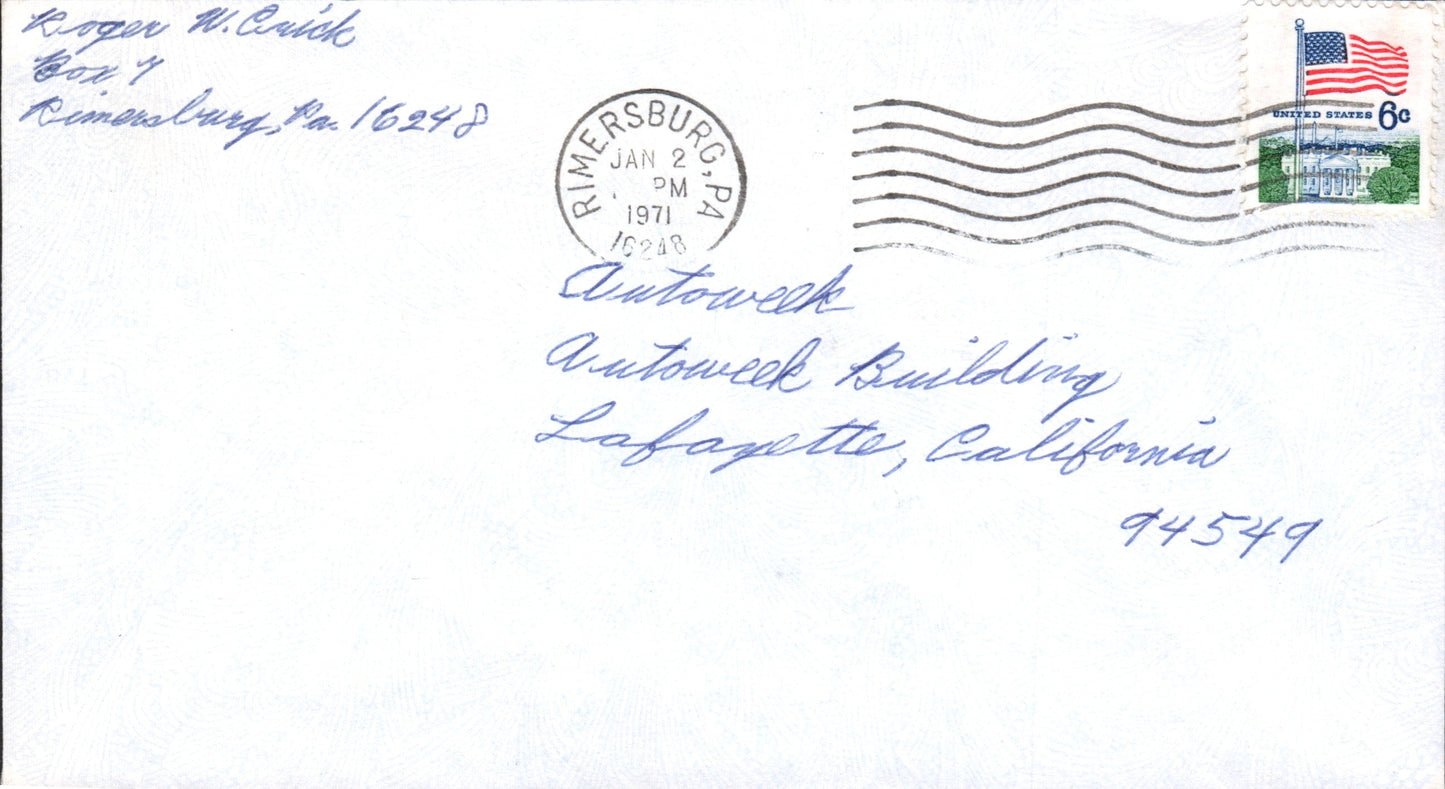 Roger W. Crick
Box 7
Rimersburg, Pa. 16248
RIMERSBURG, PA
JAN 2
PM
1971
16248
UNITED STATES 6c
Autoweek
Autoweek Building
Lafayette, California
94549